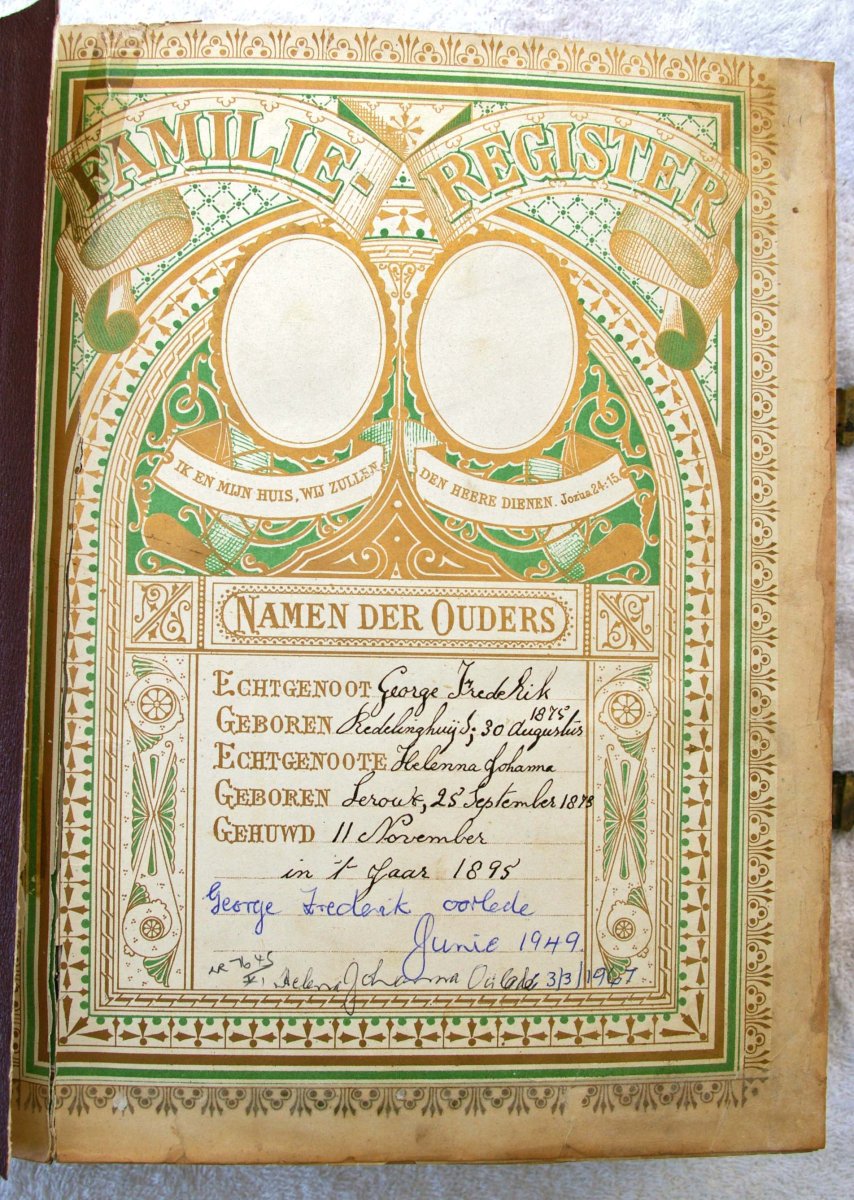 FAMILIE-REGISTER
IK EN MIJN HUIS, WIJ ZULLEN
DEN HEERE DIENEN. Jozua 24:15.
NAMEN DER OUDERS
ECHTGENOOT George Frederik
GEBOREN Redelinghuijs; 30 Augustus 1875
ECHTGENOOTE Helenna Johanna
GEBOREN Leroux, 25 September 1878
GEHUWD 11 November
in 't Jaar 1895
George Frederik oorlede
Junie 1949
Helena Johanna 3/3/1967